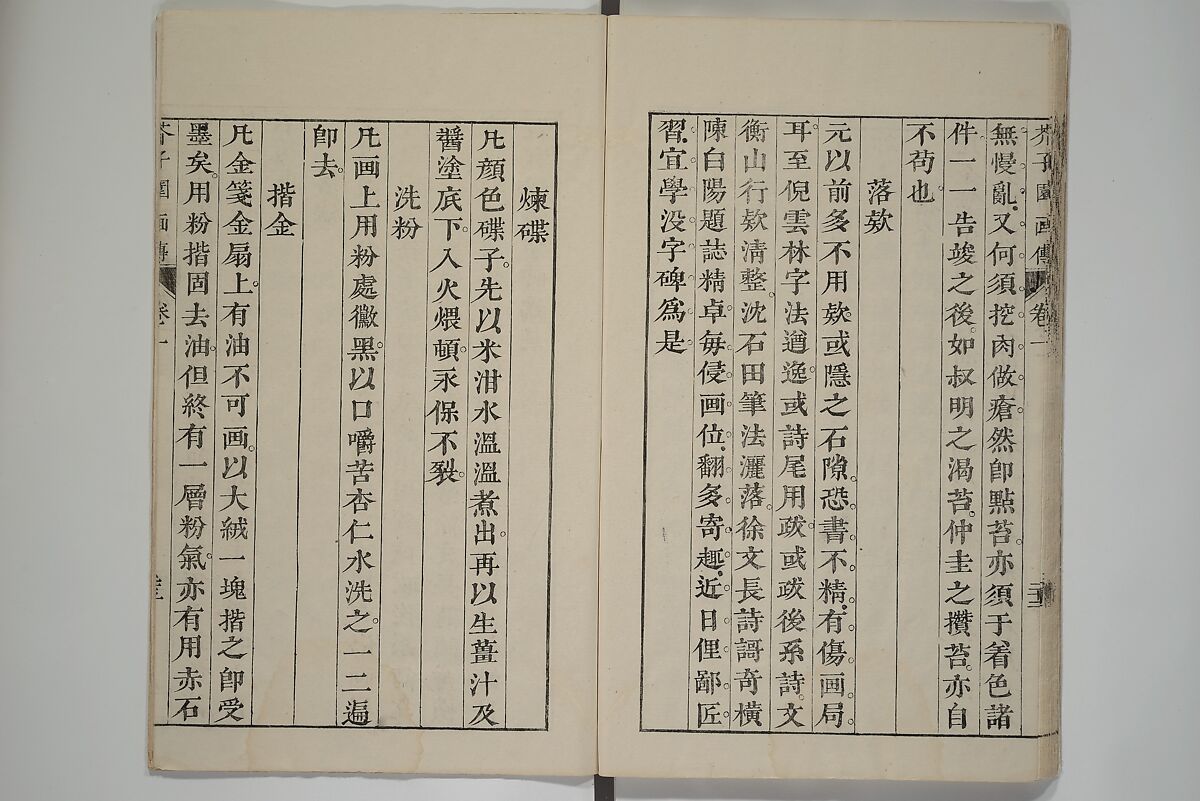 芥子園画傳 卷一
無慢亂又何須挖肉做瘡然卽點苔亦須于着色諸
件一一告竣之後如叔明之渴苔仲圭之攢苔亦自
不茍也
落欵
元以前多不用欵或隱之石隙恐書不精有傷画局
耳至倪雲林字法遒逸或詩尾用跋或跋後系詩文
衡山行欵淸整沈石田筆法灑落徐文長詩謌奇橫
陳白陽題誌精卓每侵画位翻多寄趣近日俚鄙匠
習宜學没字碑爲是
煉碟
凡顔色碟子先以米泔水溫溫煮出再以生薑汁及
醬塗底下入火煨頓永保不裂
洗粉
凡画上用粉處黴黑以口嚼苦杏仁水洗之一二遍
卽去
揩金
凡金箋金扇上有油不可画以大絨一塊揩之卽受
墨矣用粉揩固去油但終有一層粉氣亦有用赤石
芥子園画傳 卷一